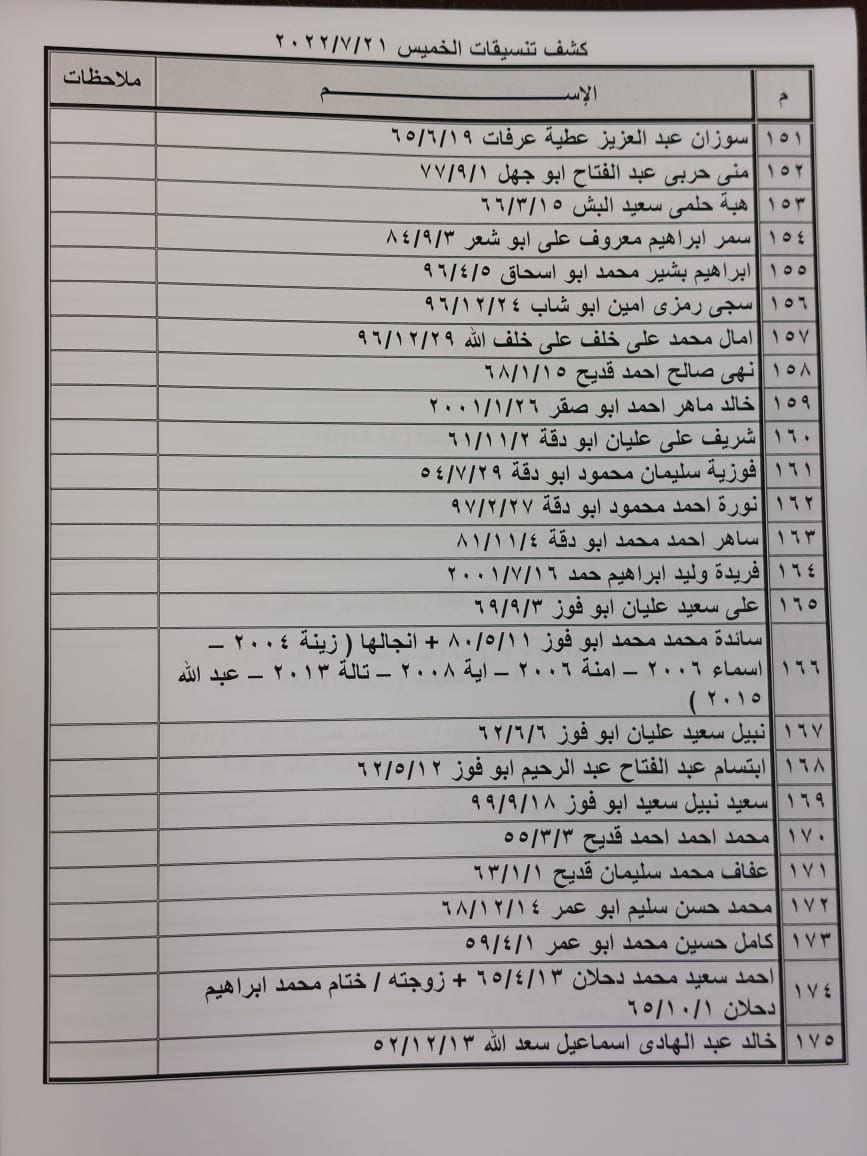 كشف تنسيقات الخميس ٢٠٢٢/٧/٢١
م الإســـــم ملاحظات
١٥١ سوزان عبد العزيز عطية عرفات ٦٥/٦/١٩
١٥٢ منى حربى عبد الفتاح ابو جهل ٧٧/٩/١
١٥٣ هبة حلمى سعيد البش ٦٦/٣/١٥
١٥٤ سمر ابراهيم معروف على ابو شعر ٨٤/٩/٣
١٥٥ ابراهيم بشير محمد ابو اسحاق ٩٦/٤/٥
١٥٦ سجى رمزى امين ابو شاب ٩٦/١٢/٢٤
١٥٧ امال محمد على خلف على خلف الله ٩٦/١٢/٢٩
١٥٨ نهى صالح احمد قديح ٦٨/١/١٥
١٥٩ خالد ماهر احمد ابو صقر ٢٠٠١/١/٢٦
١٦٠ شريف على عليان ابو دقة ٦١/١١/٢
١٦١ فوزية سليمان محمود ابو دقة ٥٤/٧/٢٩
١٦٢ نورة احمد محمود ابو دقة ٩٧/٢/٢٧
١٦٣ ساهر احمد محمد ابو دقة ٨١/١١/٤
١٦٤ فريدة وليد ابراهيم حمد ٢٠٠١/٧/١٦
١٦٥ على سعيد عليان ابو فوز ٦٩/٩/٣
١٦٦ سائدة محمد محمد ابو فوز ٨٠/٥/١١ + انجالها ( زينة ٢٠٠٤ –
اسماء ٢٠٠٦ – امنة ٢٠٠٦ – اية ٢٠٠٨ – تالة ٢٠١٣ – عبد الله
٢٠١٥ )
١٦٧ نبيل سعيد عليان ابو فوز ٦٢/٦/٦
١٦٨ ابتسام عبد الفتاح عبد الرحيم ابو فوز ٦٢/٥/١٢
١٦٩ سعيد نبيل سعيد ابو فوز ٩٩/٩/١٨
١٧٠ محمد احمد احمد قديح ٥٥/٣/٣
١٧١ عفاف محمد سليمان قديح ٦٣/١/١
١٧٢ محمد حسن سليم ابو عمر ٦٨/١٢/١٤
١٧٣ كامل حسين محمد ابو عمر ٥٩/٤/١
١٧٤ احمد سعيد محمد دحلان ٦٥/٤/١٣ + زوجته / ختام محمد ابراهيم
دحلان ٦٥/١٠/١
١٧٥ خالد عبد الهادى اسماعيل سعد الله ٥٢/١٢/١٣